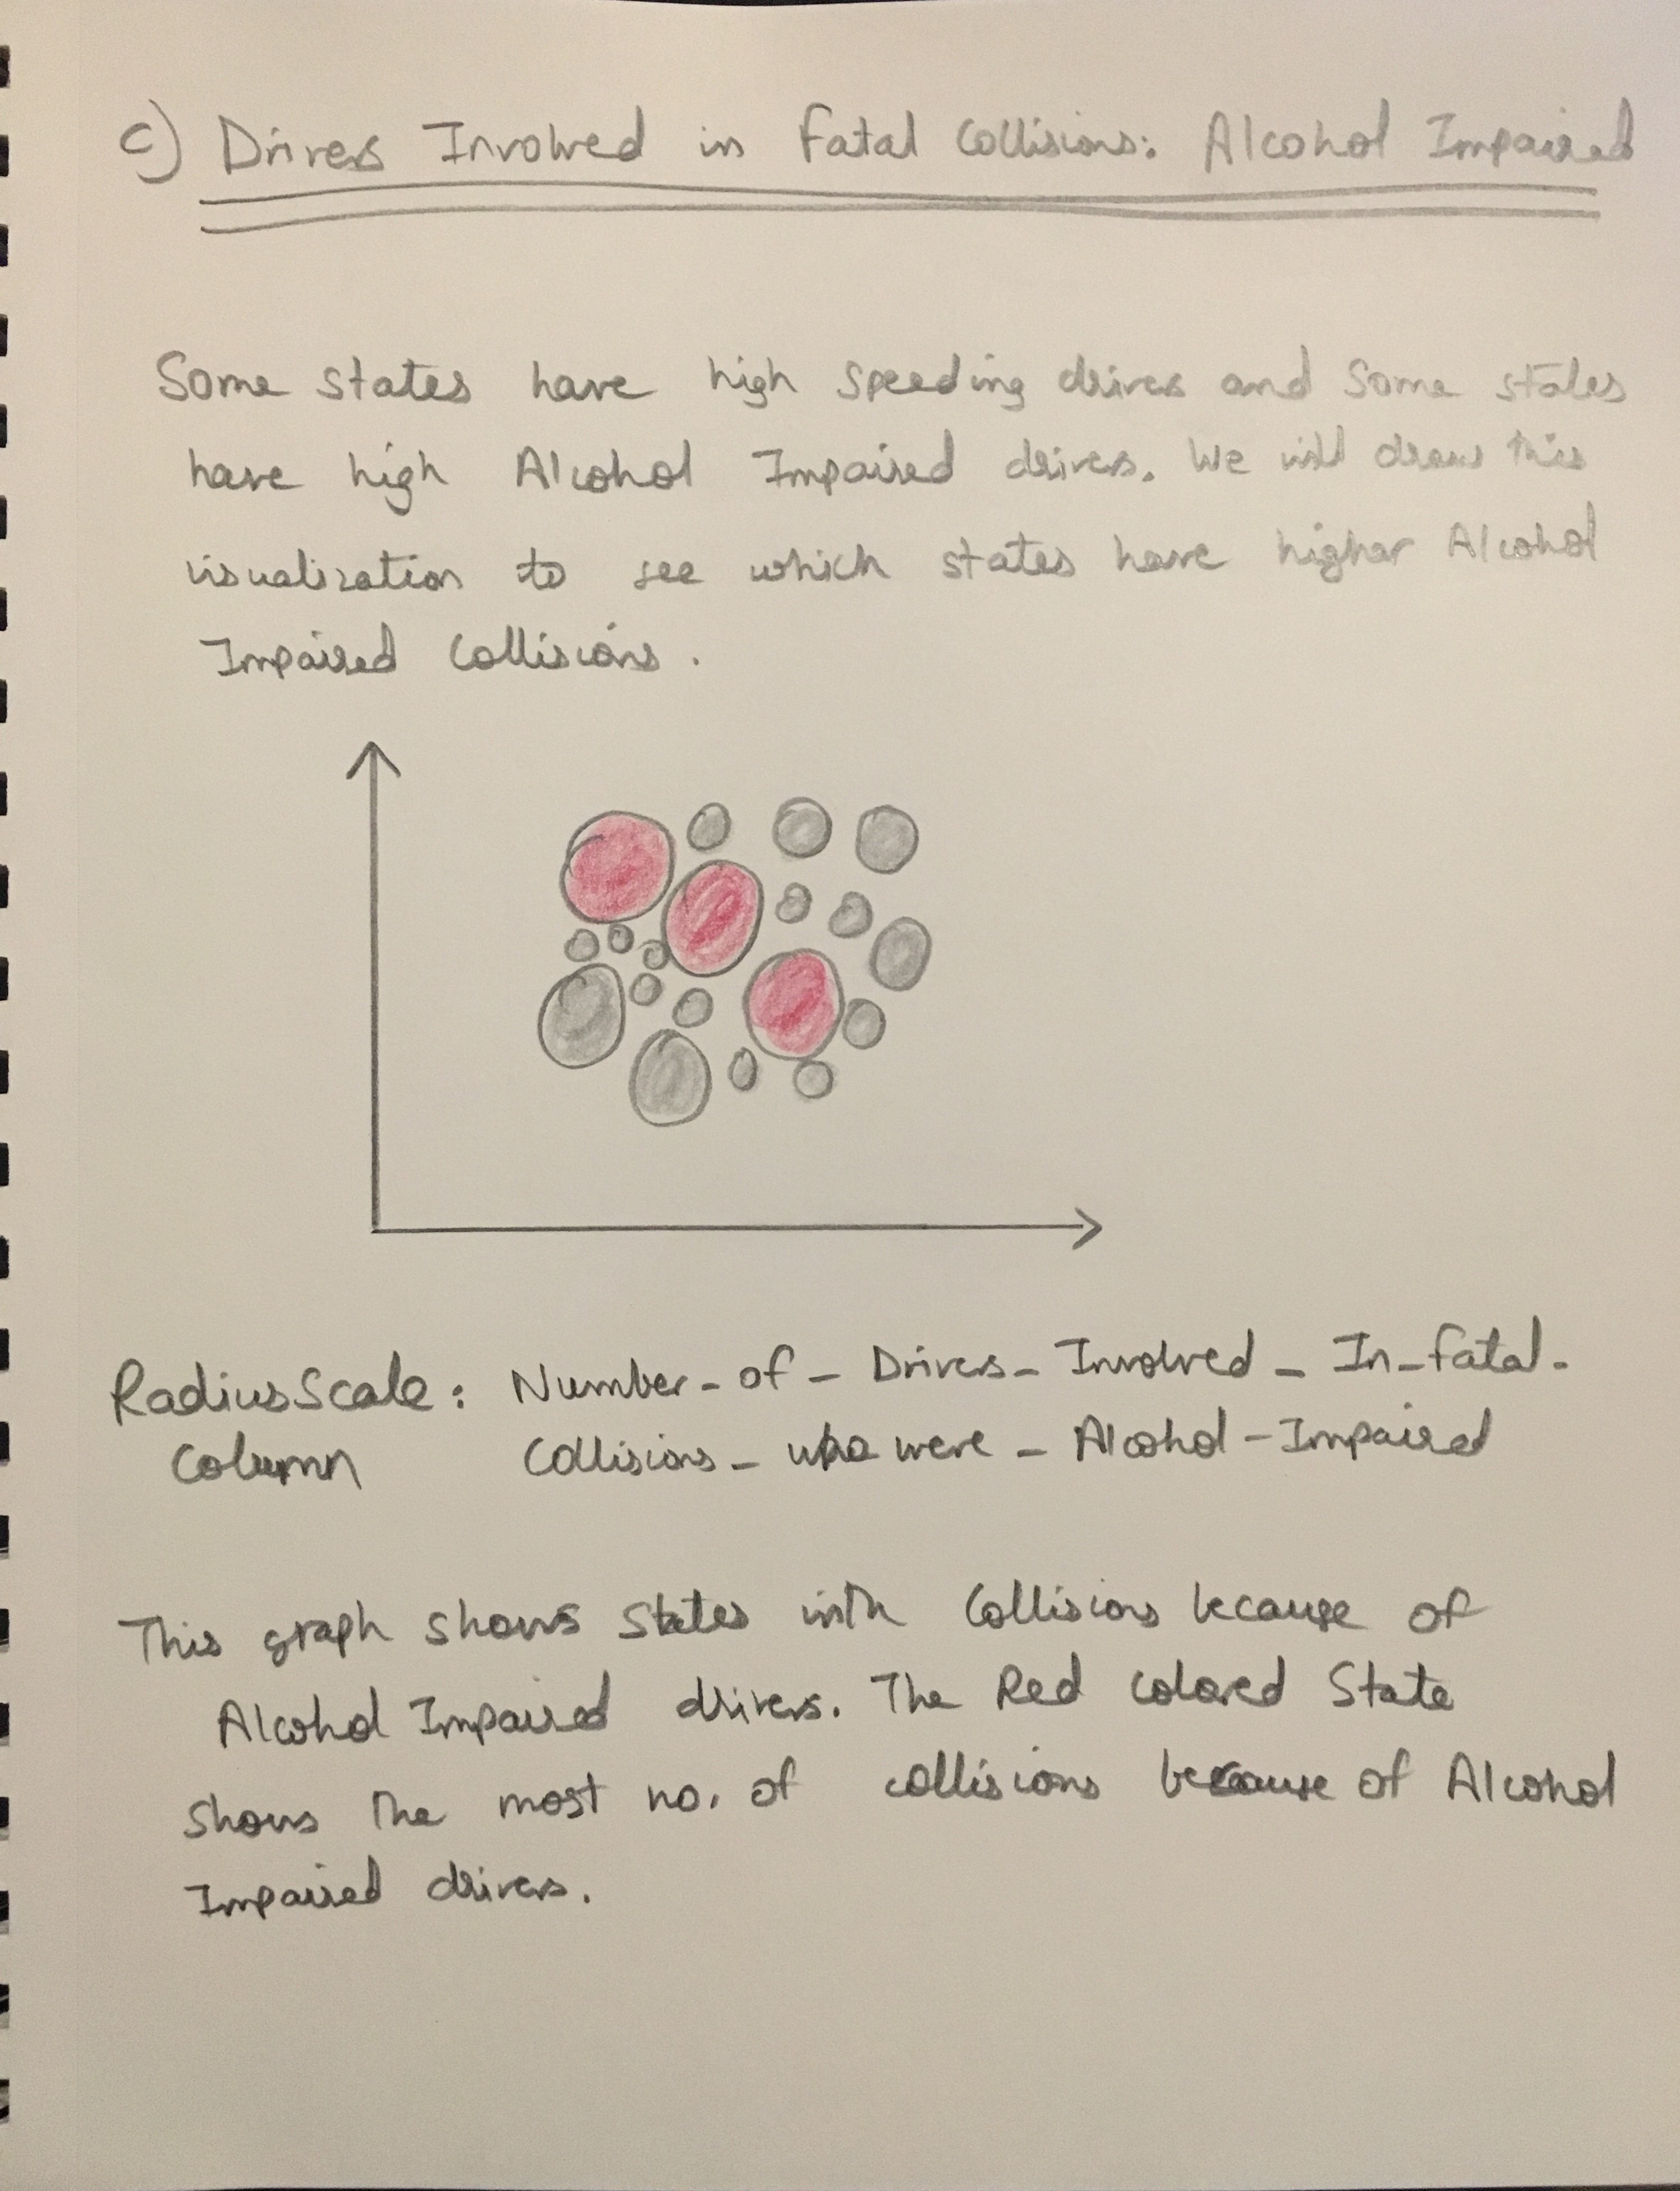 c) Drivers Involved in Fatal Collisions: Alcohol Impaired
Some states have high speeding drivers and some states
have high Alcohol Impaired drivers. We will draw this
visualization to see which states have higher Alcohol
Impaired Collisions.
RadiusScale: Number_of_Drivers_Involved_In_fatal_
Column Collisions_who were_Alcohol-Impaired
This graph shows states with Collisions because of
Alcohol Impaired drivers. The Red colored State
shows the most no. of collisions because of Alcohol
Impaired drivers.